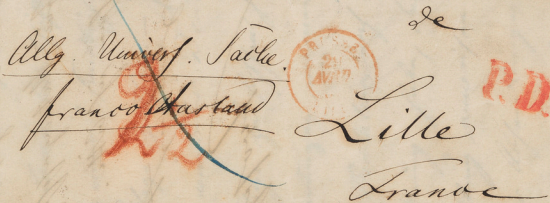 de
Allg. Univers. Sache.
franco Ausland
PRUSSE
29
AVRIL
P.D.
Lille
France